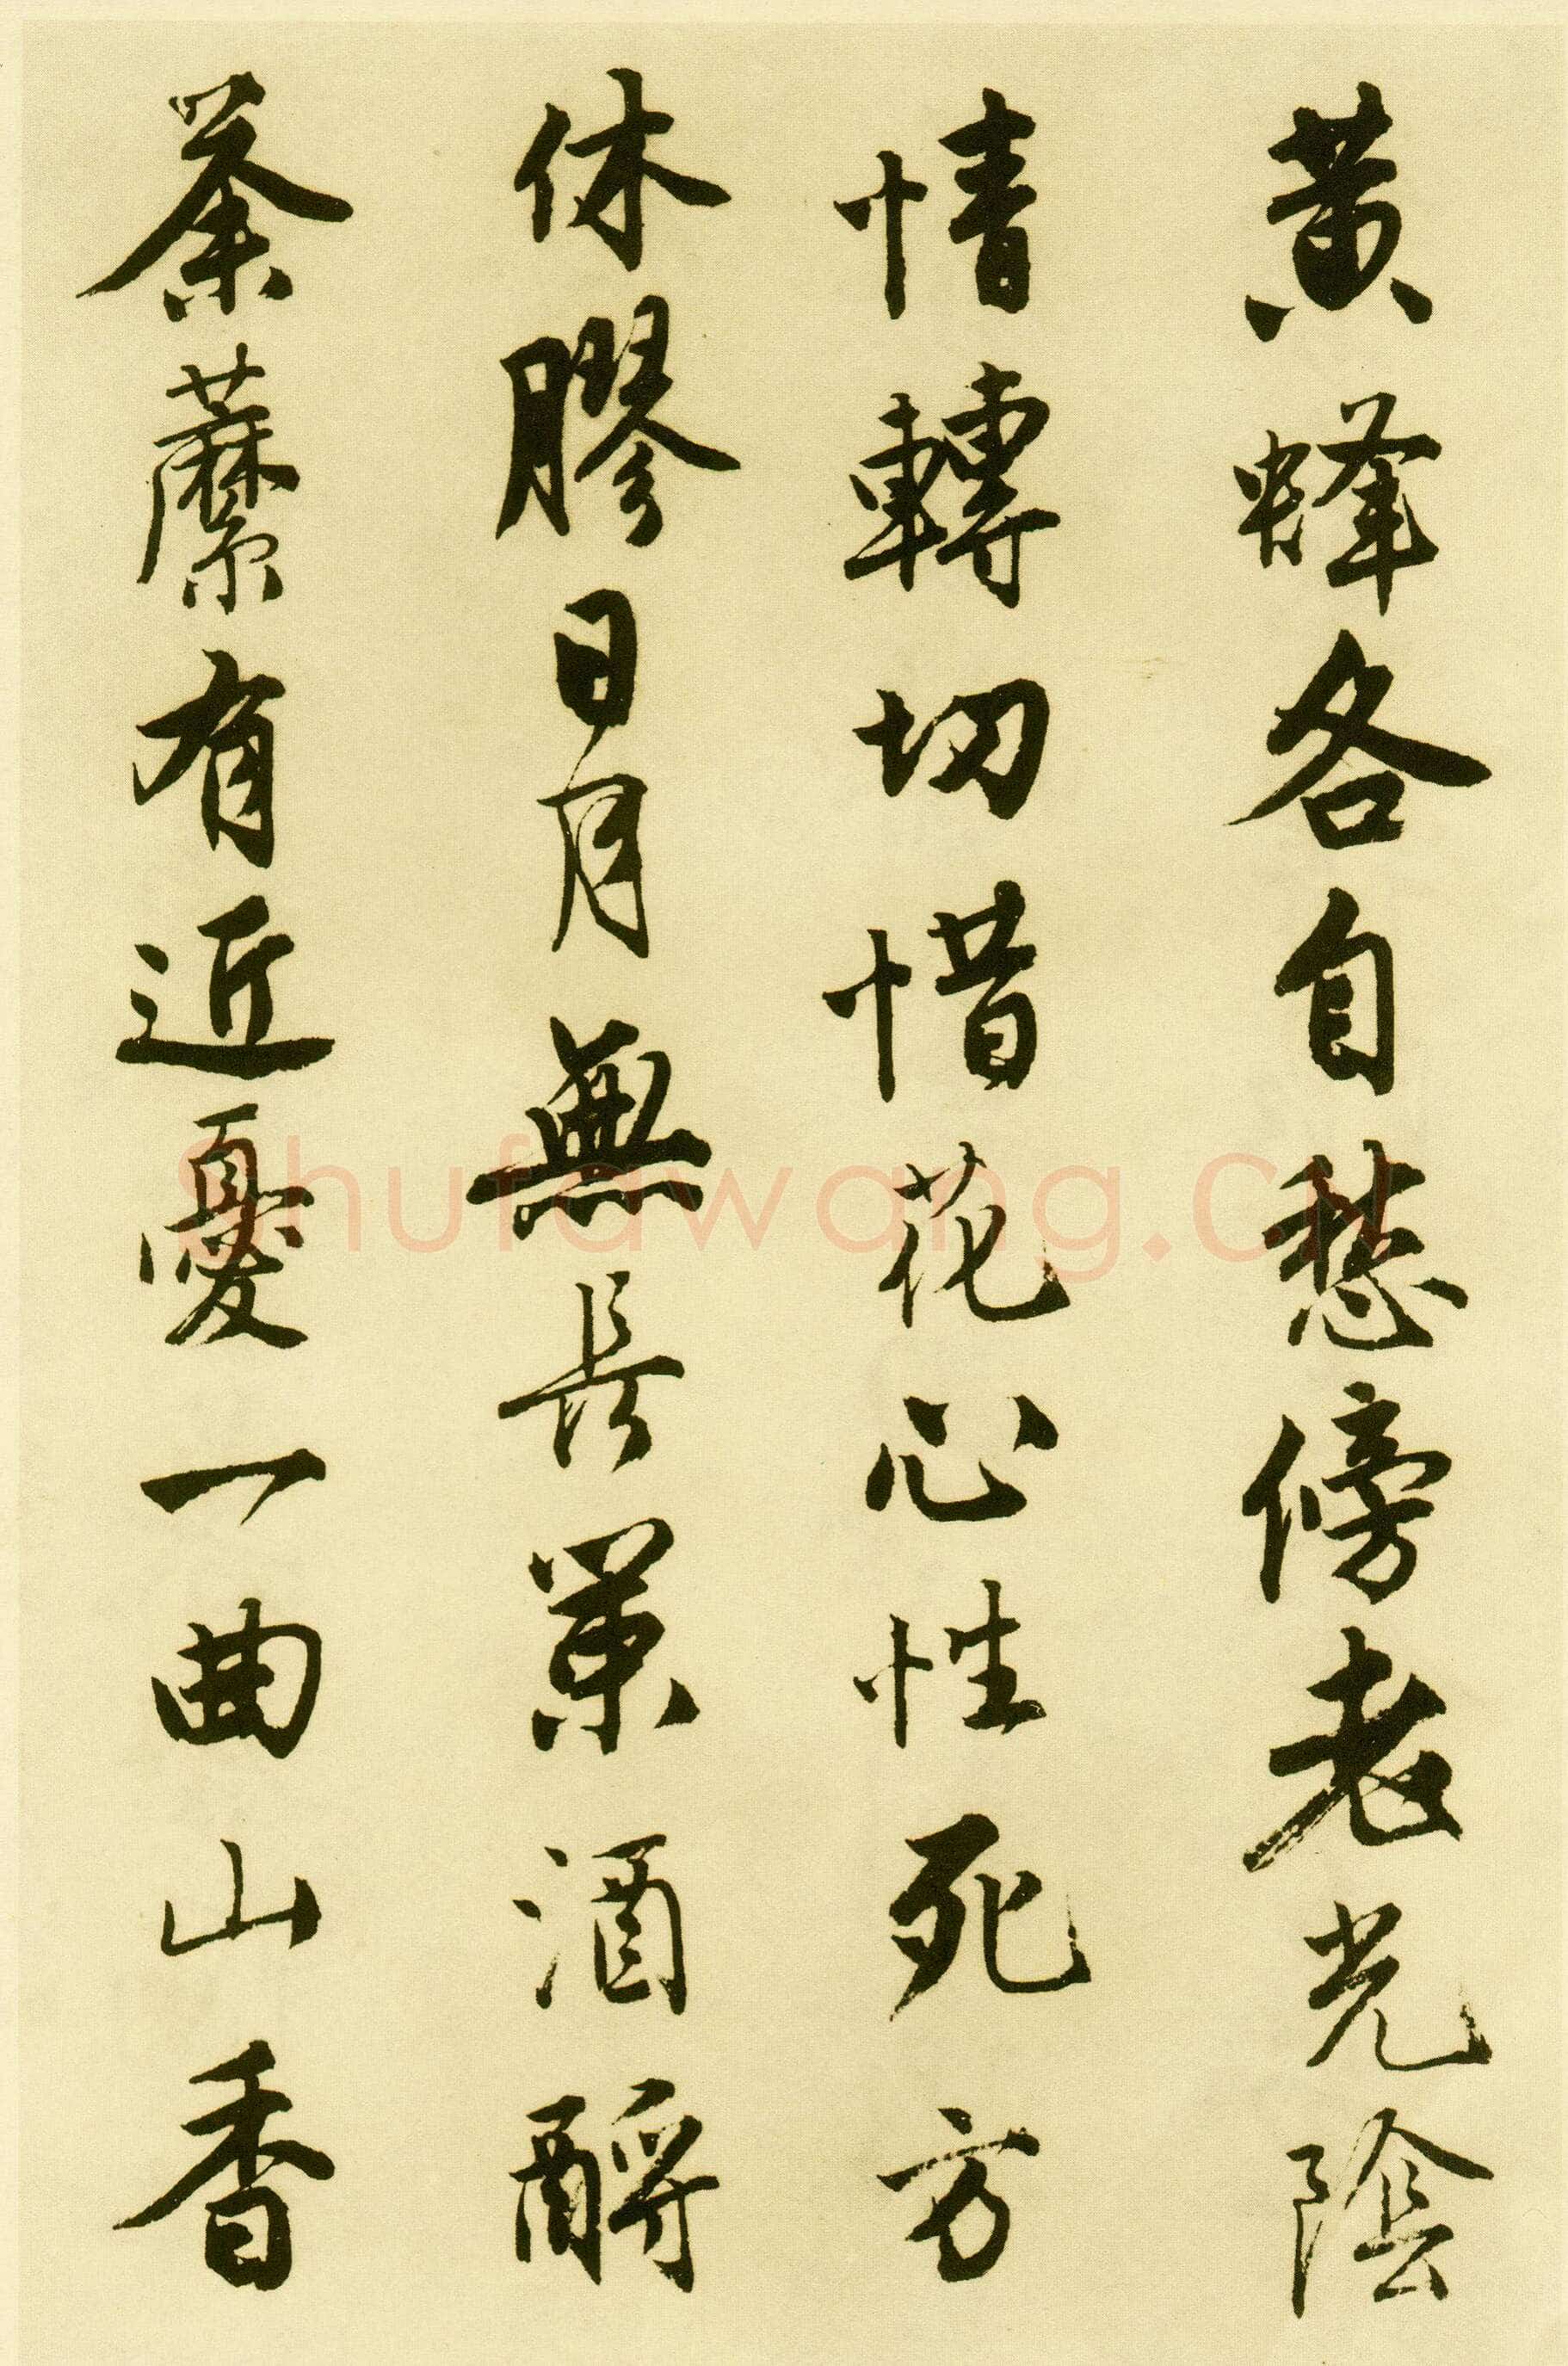 黃蜂各自愁傍老光陰
情轉切惜花心性死方
休膠日月無長策酒酹
荼蘼有近憂一曲山香
shufawang.cn